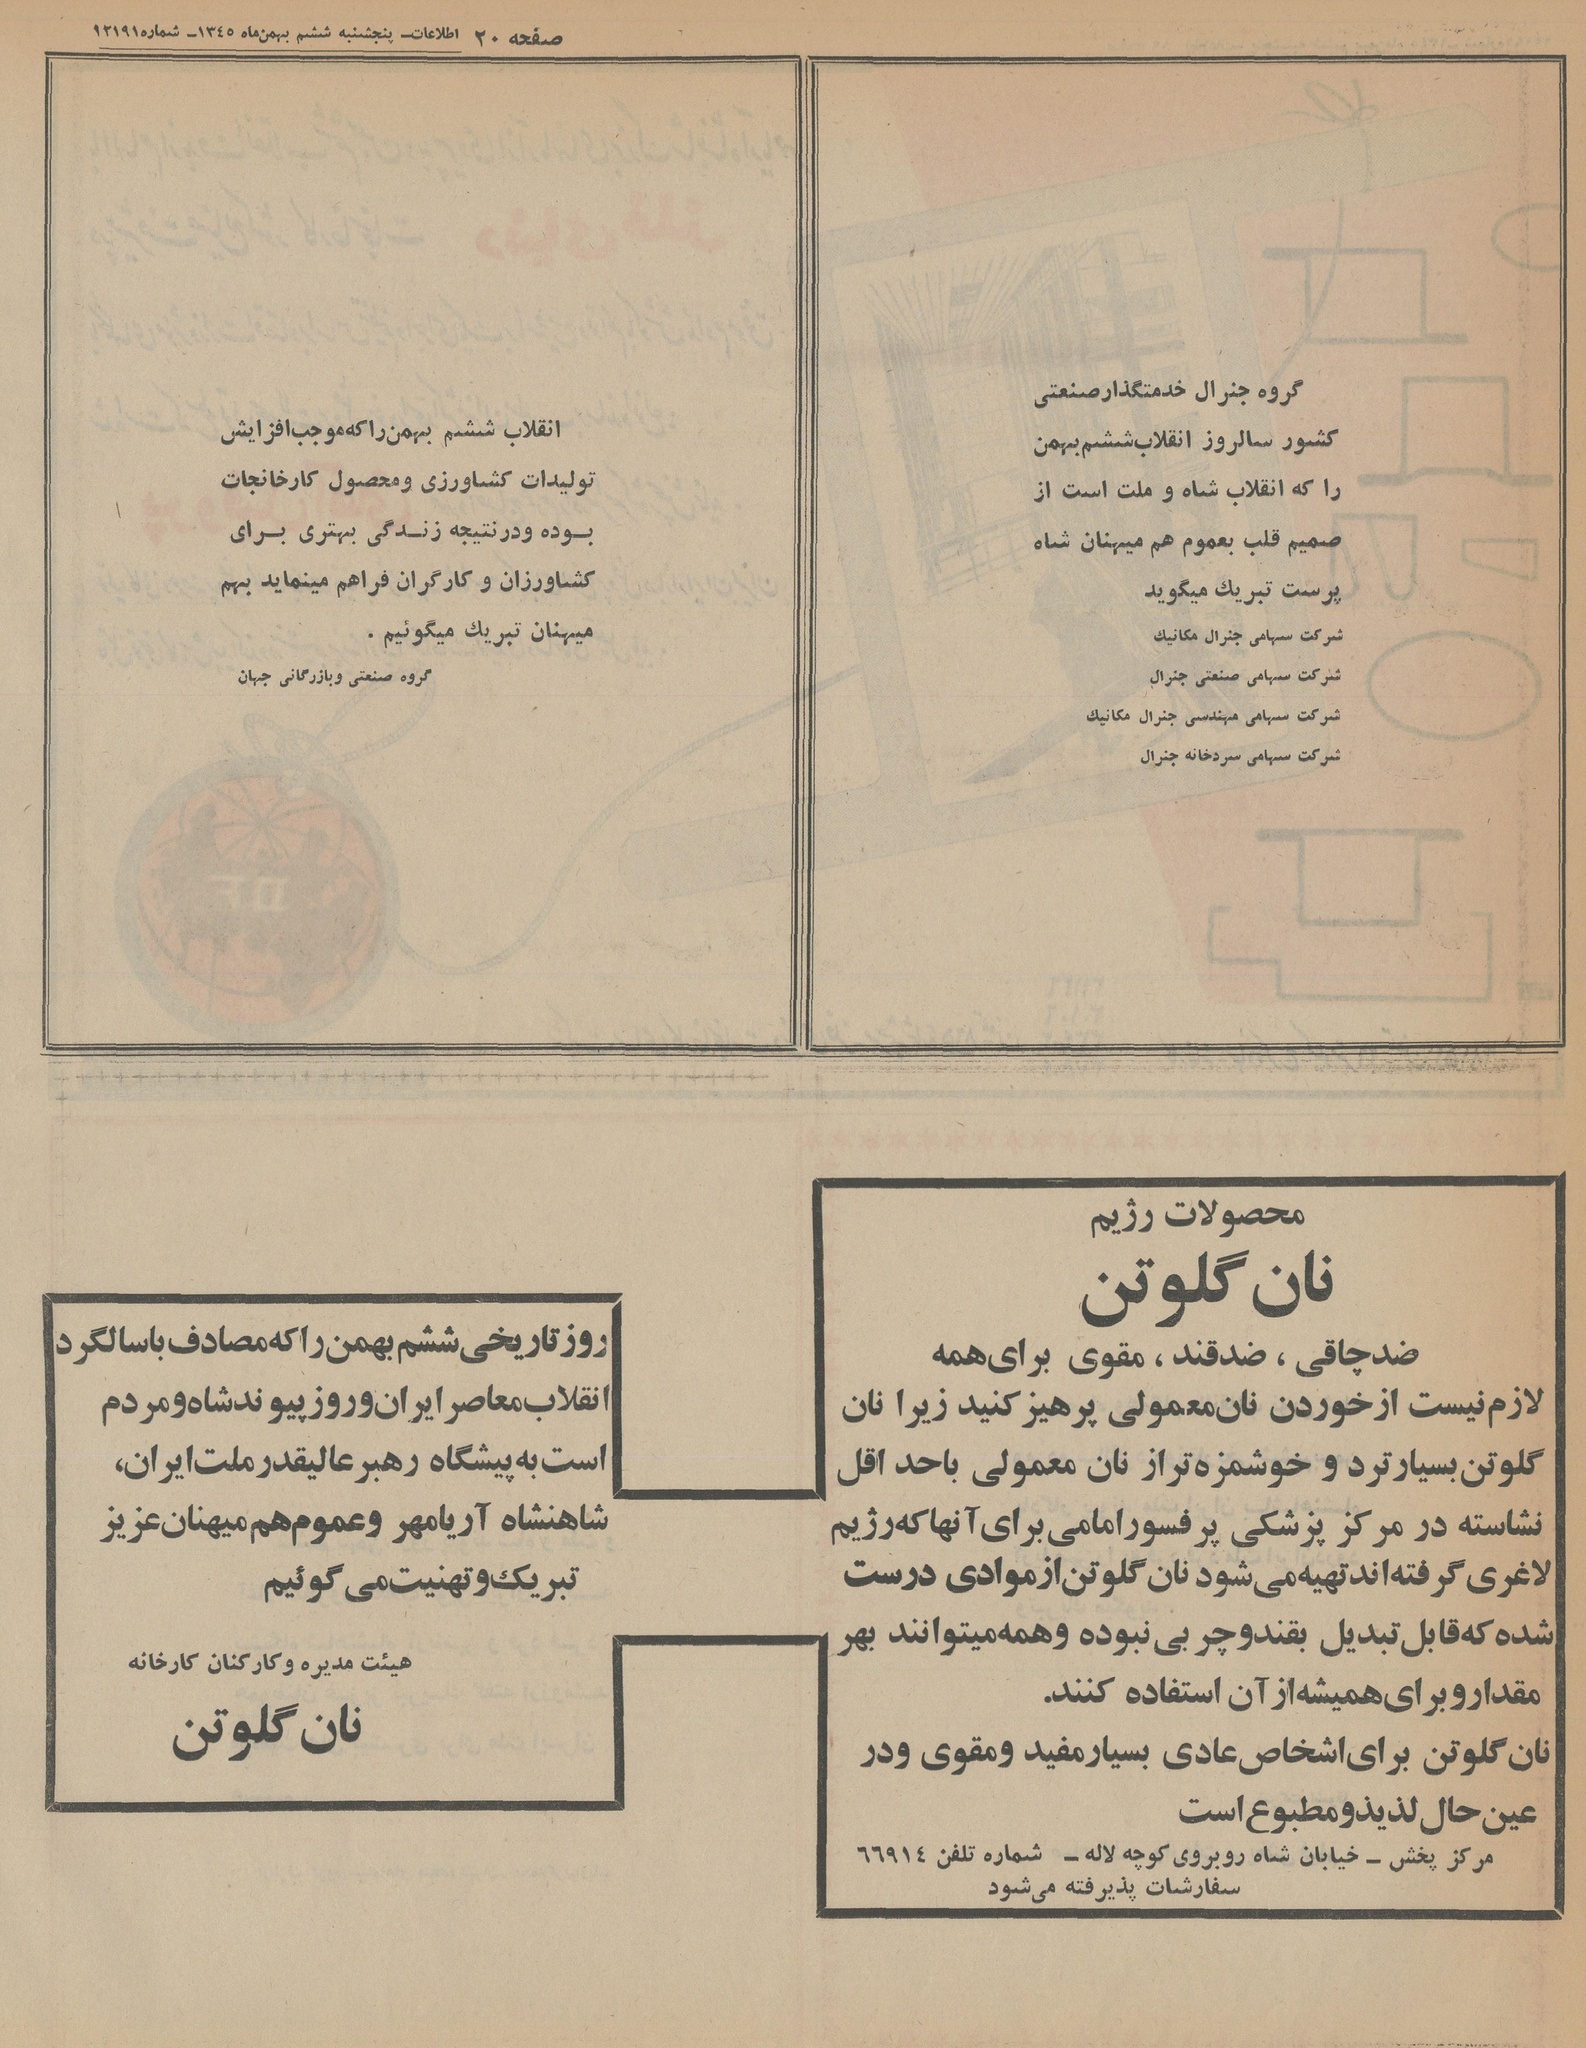 صفحه ۲۰ اطلاعات– پنجشنبه ششم بهمن‌ماه ۱۳٤٥– شماره ۱۲۱۹۱
گروه جنرال خدمتگذار صنعتی
کشور سالروز انقلاب ششم بهمن
را که انقلاب شاه و ملت است از
صمیم قلب بعموم هم میهنان شاه
پرست تبریك میگوید
شرکت سهامی جنرال مکانیك
شرکت سهامی صنعتی جنرال
شرکت سهامی مهندسی جنرال مکانیك
شرکت سهامی سردخانه جنرال
انقلاب ششم بهمن را که موجب افزایش
تولیدات کشاورزی ومحصول کارخانجات
بـوده ودرنتیجه زنـدگی بهتری بـرای
کشاورزان و کارگران فراهم مینماید بهم
میهنان تبریك میگوئیم .
گروه صنعتی وبازرگانی جهان
محصولات رژیم
نان گلوتن
ضدچاقی ، ضدقند ، مقوی برای همه
لازم نیست از خوردن نان معمولی پرهیز کنید زیرا نان
گلوتن بسیار ترد و خوشمزه‌تر از نان معمولی باحد اقل
نشاسته در مرکز پزشکی پرفسور امامی برای آنها که رژیم
لاغری گرفته‌اند تهیه می‌شود نان گلوتن از موادی درست
شده که قابل تبدیل بقند و چربی نبوده و همه میتوانند بهر
مقدار و برای همیشه از آن استفاده کنند.
نان گلوتن برای اشخاص عادی بسیار مفید ومقوی ودر
عین حال لذیذ و مطبوع است
مرکز پخش – خیابان شاه روبروی کوچه لاله – شماره تلفن ٦٦۹۱٤
سفارشات پذیرفته می‌شود
روز تاریخی ششم بهمن را که مصادف با سالگرد
انقلاب معاصر ایران و روز پیوند شاه و مردم
است به پیشگاه رهبر عالیقدر ملت ایران،
شاهنشاه آریامهر وعموم هم میهنان عزیز
تبریک و تهنیت می گوئیم
هیئت مدیره وکارکنان کارخانه
نان گلوتن